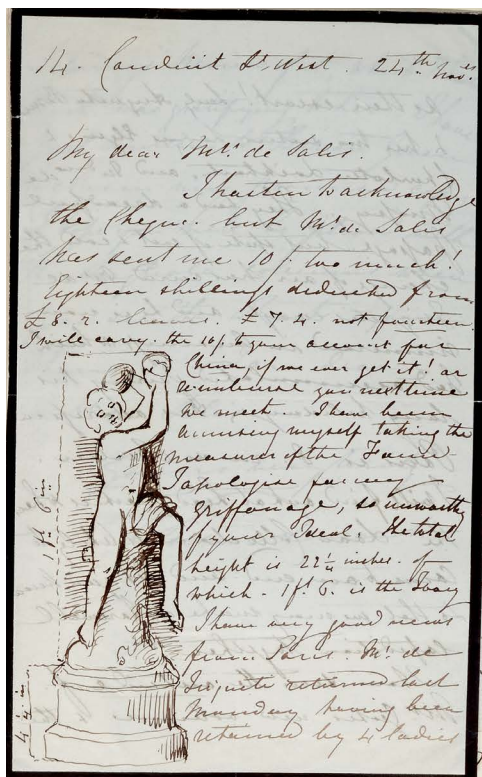 14. Conduit St West. 24th Novr
My dear Mrs de Salis.
I hasten to acknowledge
the Cheque. but Mr de Salis
has sent me 10/. too much!
Eighteen shillings deducted from
£8. 2. leaves. £7.4. not fourteen.
I will carry. the 10/. to your account for
China, if we ever get it! or
reimburse you next time
we meet. I have been
amusing myself taking the
measures of the Faune
I apologise for my
griffonage, so unworthy
of your Ideal. The total
height is 22¼ inches. of
which. 1ft 6. is the Ivory
I have very good news
from Paris. Mr de
returned last
Monday having been
returned by 4 ladies
1ft. 6 in
4¼ in